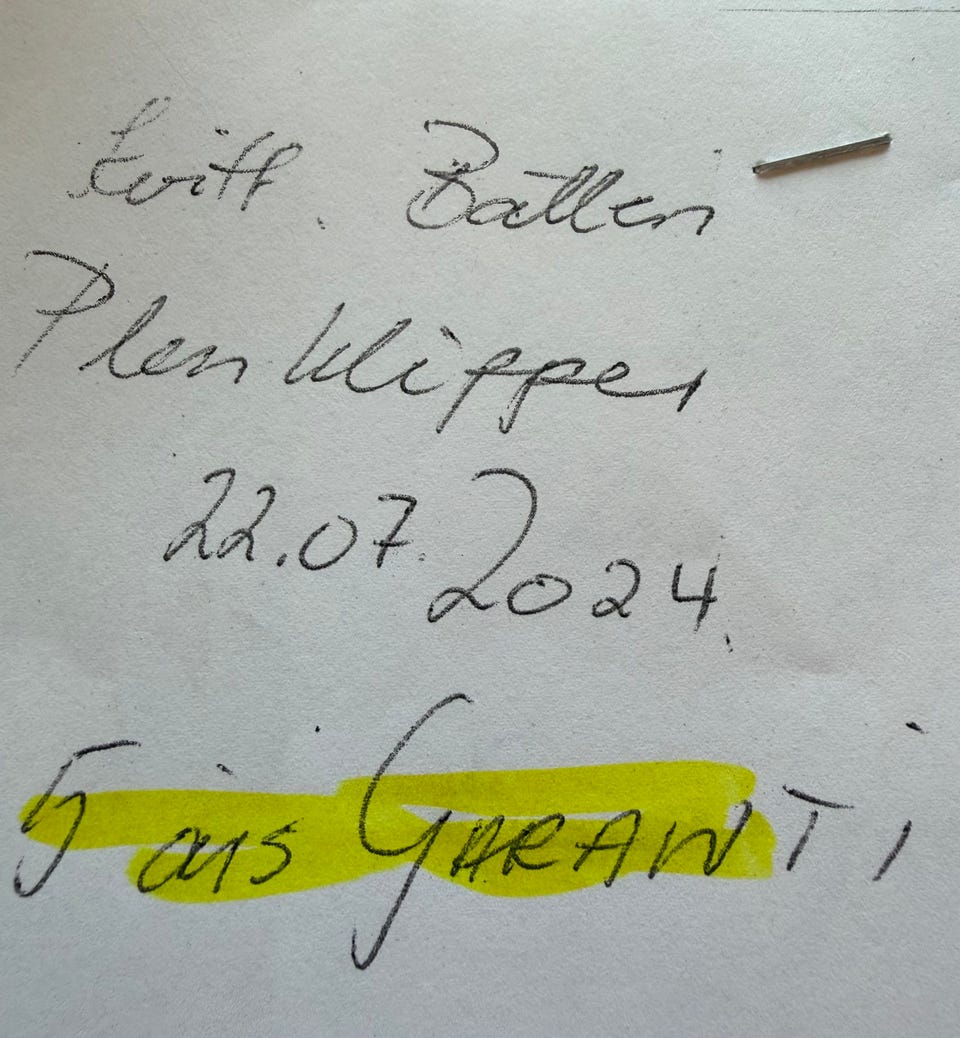 kvitt. Batteri
Plenklipper
22.07.2024.
5 års GARANTi